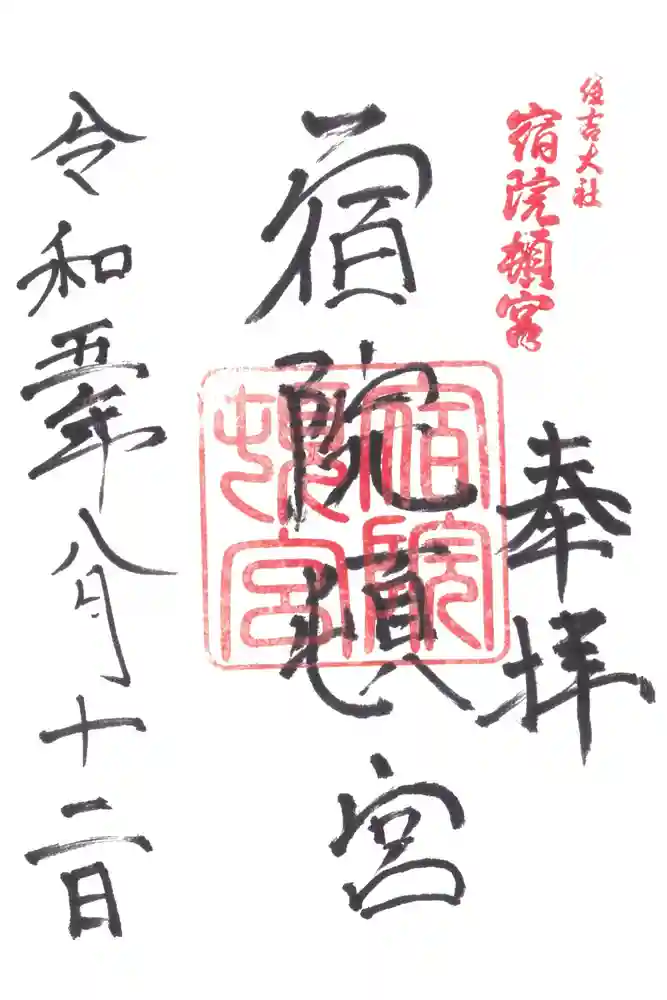 住吉大社
宿院頓宮
奉拝
宿院頓宮
宿院頓宮
令和五年八月十二日